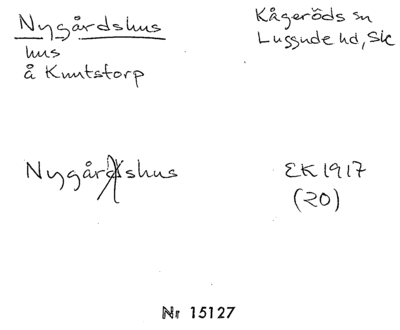 Nygårdshus
hus
å Knutstorp
Kågeröds sn
Luggude hd, Sk
Nygårdshus
EK 1917
(20)
Nr 15127